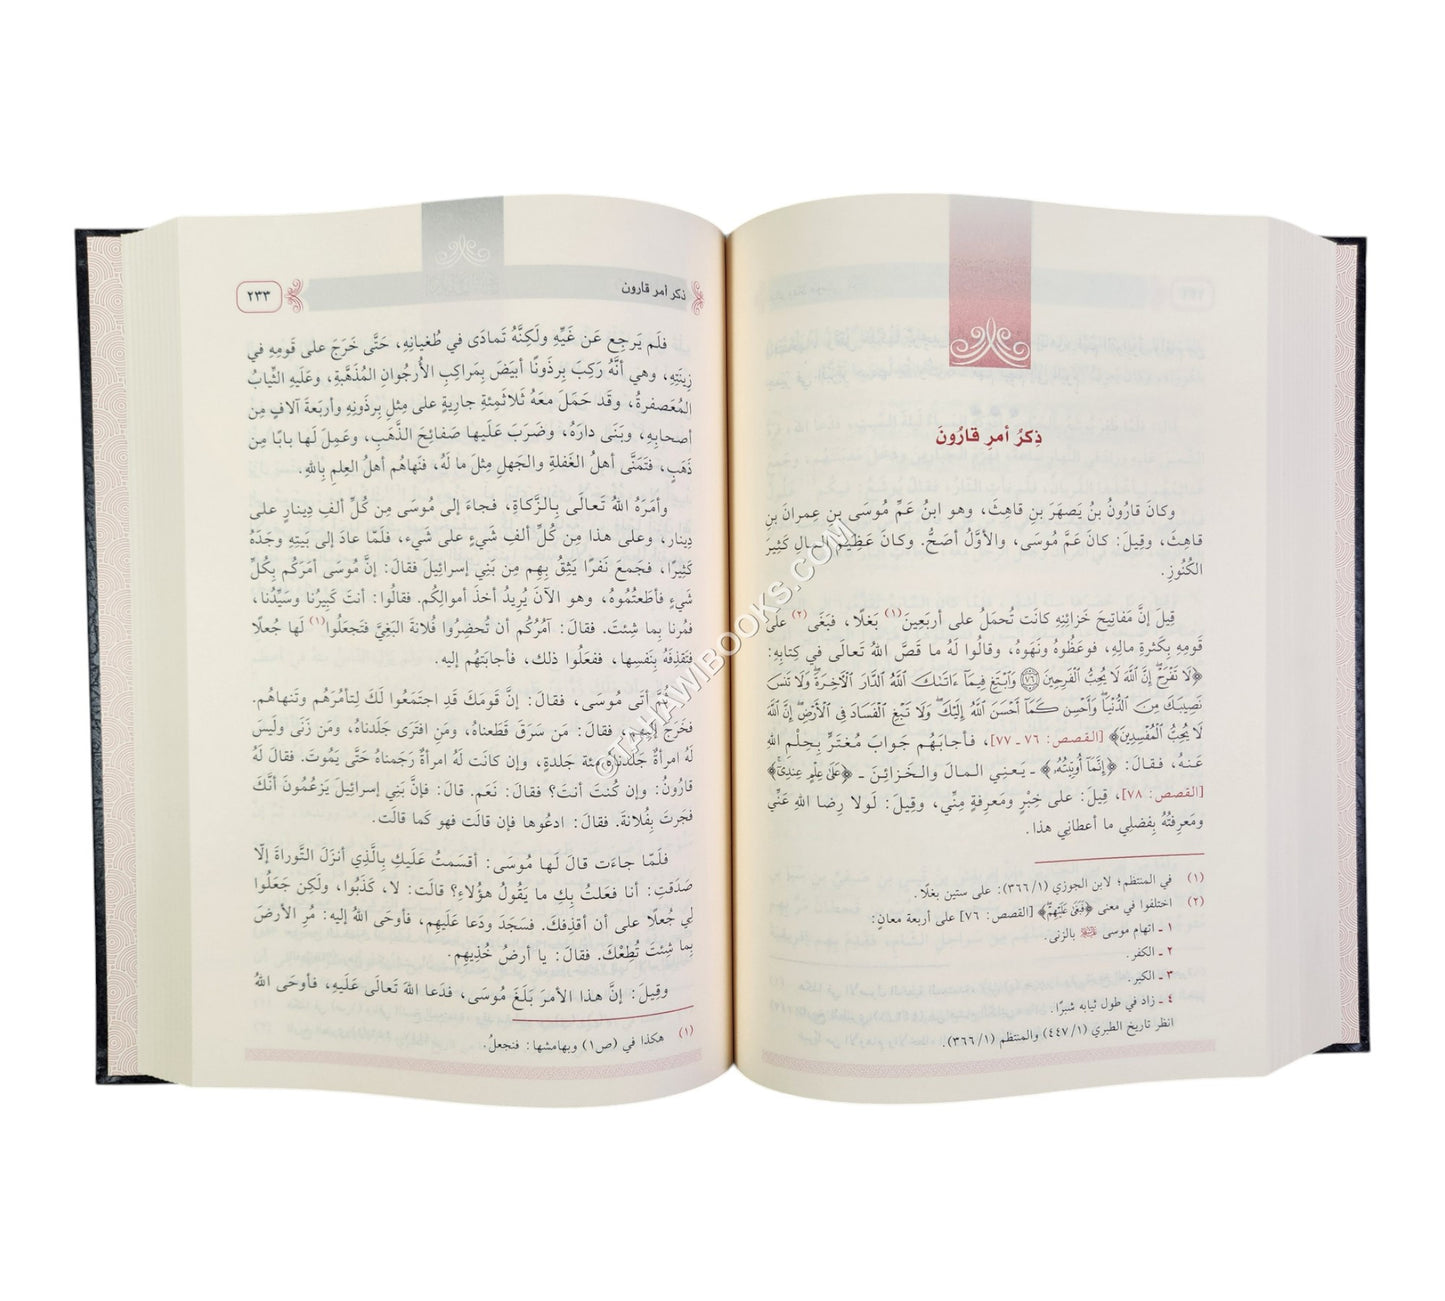 ذِكرُ أمرِ قارُونَ
وكانَ قارُونُ بنُ يَصهَرَ بنِ قاهِثَ، وهو ابنُ عَمِّ مُوسَى بنِ عِمرانَ بنِ
قاهِثَ، وقِيلَ: كانَ عَمَّ مُوسَى، والأوَّلُ أصَحُّ. وكانَ عَظِيمَ المالِ كَثِيرَ
الكُنُوزِ.
قِيلَ إنَّ مَفاتِيحَ خَزائِنِهِ كانَت تُحمَلُ على أربَعِينَ(١) بَغلًا، فبَغَى(٢) على
قَومِهِ بِكَثرةِ مالِهِ، فوَعَظُوهُ ونَهَوهُ، وقالُوا لَهُ ما قَصَّ اللهُ تَعالَى في كِتابِهِ:
﴿لَا تَفْرَحْ إِنَّ ٱللَّهَ لَا يُحِبُّ ٱلْفَرِحِينَ ۝٧٦ وَٱبْتَغِ فِيمَآ ءَاتَىٰكَ ٱللَّهُ ٱلدَّارَ ٱلْأَخِرَةَ وَلَا تَنسَ
نَصِيبَكَ مِنَ ٱلدُّنْيَا وَأَحْسِن كَمَآ أَحْسَنَ ٱللَّهُ إِلَيْكَ وَلَا تَبْغِ ٱلْفَسَادَ فِى ٱلْأَرْضِ إِنَّ ٱللَّهَ
لَا يُحِبُّ ٱلْمُفْسِدِينَ﴾ [القصص: ٧٦ ـ ٧٧]، فأجابَهُم جَوابَ مُغتَرٍّ بِحِلْمِ اللهِ
عَنهُ، فقالَ: ﴿إِنَّمَآ أُوتِيتُهُۥ﴾ ـ يَعنِي المالَ والخَزائِنَ ـ ﴿عَلَىٰ عِلْمٍ عِندِىٓ﴾
[القصص: ٧٨]، قِيلَ: على خِبْرٍ ومَعرِفةٍ مِنِّي، وقِيلَ: لَولا رِضا اللهِ عَنِّي
ومَعرِفتُهُ بِفَضلِي ما أعطانِي هذا.
(١) في المنتظم؛ لابن الجوزي (٣٦٦/١): على ستين بغلًا.
(٢) اختلفوا في معنى ﴿فَبَغَىٰ عَلَيْهِمْ﴾ [القصص: ٧٦] على أربعة معانٍ:
١ ـ اتهام موسى ﷺ بالزنى.
٢ ـ الكفر.
٣ ـ الكبر.
٤ ـ زاد في طول ثيابه شبرًا.
انظر تاريخ الطبري (٤٤٧/١) والمنتظم (٣٦٦/١).
ذكر أمر قارون
٢٣٣
فلَم يَرجِع عَن غَيِّهِ ولَكِنَّهُ تَمادَى في طُغيانِهِ، حَتَّى خَرَجَ على قَومِهِ في
زِينَتِهِ، وهي أنَّهُ رَكِبَ بِرذَونًا أبيَضَ بِمَراكِبِ الأُرجُوانِ المُذَهَّبةِ، وعَلَيهِ الثِّيابُ
المُعَصفرةُ، وقَد حَمَلَ معَهُ ثَلاثَمِئةِ جارِيةٍ على مِثلِ بِرذَونِهِ وأربَعةَ آلافٍ مِن
أصحابِهِ، وبَنَى دارَهُ، وضَرَبَ عَلَيها صَفائِحَ الذَّهَبِ، وعَمِلَ لَها بابًا مِن
ذَهَبٍ، فتَمَنَّى أهلُ الغَفلةِ والجَهلِ مِثلَ ما لَهُ، فنَهاهُم أهلُ العِلمِ بِاللهِ.
وأمَرَهُ اللهُ تَعالَى بِالزَّكاةِ، فجاءَ إلى مُوسَى مِن كُلِّ ألفِ دِينارٍ على
دِينارٍ، وعلى هذا مِن كُلِّ ألفِ شَيءٍ على شَيءٍ، فلَمّا عادَ إلى بَيتِهِ وجَدَهُ
كَثِيرًا، فجَمعَ نَفَرًا يَثِقُ بِهِم مِن بَنِي إسرائِيلَ فقالَ: إنَّ مُوسَى أمَرَكُم بِكُلِّ
شَيءٍ فأطَعتُمُوهُ، وهو الآنَ يُرِيدُ أخذَ أموالِكُم. فقالُوا: أنتَ كَبِيرُنا وسَيِّدُنا،
فمُرنا بِما شِئتَ. فقالَ: آمُرُكُم أن تُحضِرُوا فُلانةَ البَغِيَّ فتَجعَلُوا(١) لَها جُعلًا
فتَقذِفَهُ بِنَفسِها، ففعَلُوا ذلك، فأجابَتهُم إليه.
ثُمَّ أتَى مُوسَى، فقالَ: إنَّ قَومَكَ قَدِ اجتَمَعُوا لَكَ لِتأمُرَهُم وتَنهاهُم.
فخَرَجَ إلَيهِم، فقالَ: مَن سَرَقَ قَطَعناهُ، ومَنِ افتَرَى جَلَدناهُ، ومَن زَنَى ولَيسَ
لَهُ امرأةٌ جَلَدناهُ مِئة جَلدةٍ، وإن كانَت لَهُ امرأةٌ رَجَمناهُ حَتَّى يَمُوتَ. فقالَ لَهُ
قارُونُ: وإن كُنتَ أنتَ؟ فقالَ: نَعَم. قالَ: فإنَّ بَنِي إسرائِيلَ يَزعُمُونَ أنَّكَ
فجَرتَ بِفُلانةَ. فقالَ: ادعُوها فإن قالَت فهو كَما قالَت.
فلَمّا جاءَت قالَ لَها مُوسَى: أقسَمتُ عَلَيكِ بِالَّذِي أنزَلَ التَّوراةَ إلّا
صَدَقتِ: أنا فعَلتُ بِكِ ما يَقُولُ هؤُلاءِ؟ قالَت: لا، كَذَبُوا، ولَكِن جَعَلُوا
لِي جُعلًا على أن أقذِفكَ. فسَجَدَ ودَعا عَلَيهِم، فأوحَى اللهُ إليه: مُرِ الأرضَ
بِما شِئتَ تُطِعْكَ. فقالَ: يا أرضُ خُذِيهِم.
وقِيلَ: إنَّ هذا الأمرَ بَلَغَ مُوسَى، فدَعا اللهَ تَعالَى عَلَيهِ، فأوحَى اللهُ
(١) هكذا في (ص١) وبهامشها: فنجعلُ.
©TAHAWIBOOKS.COM